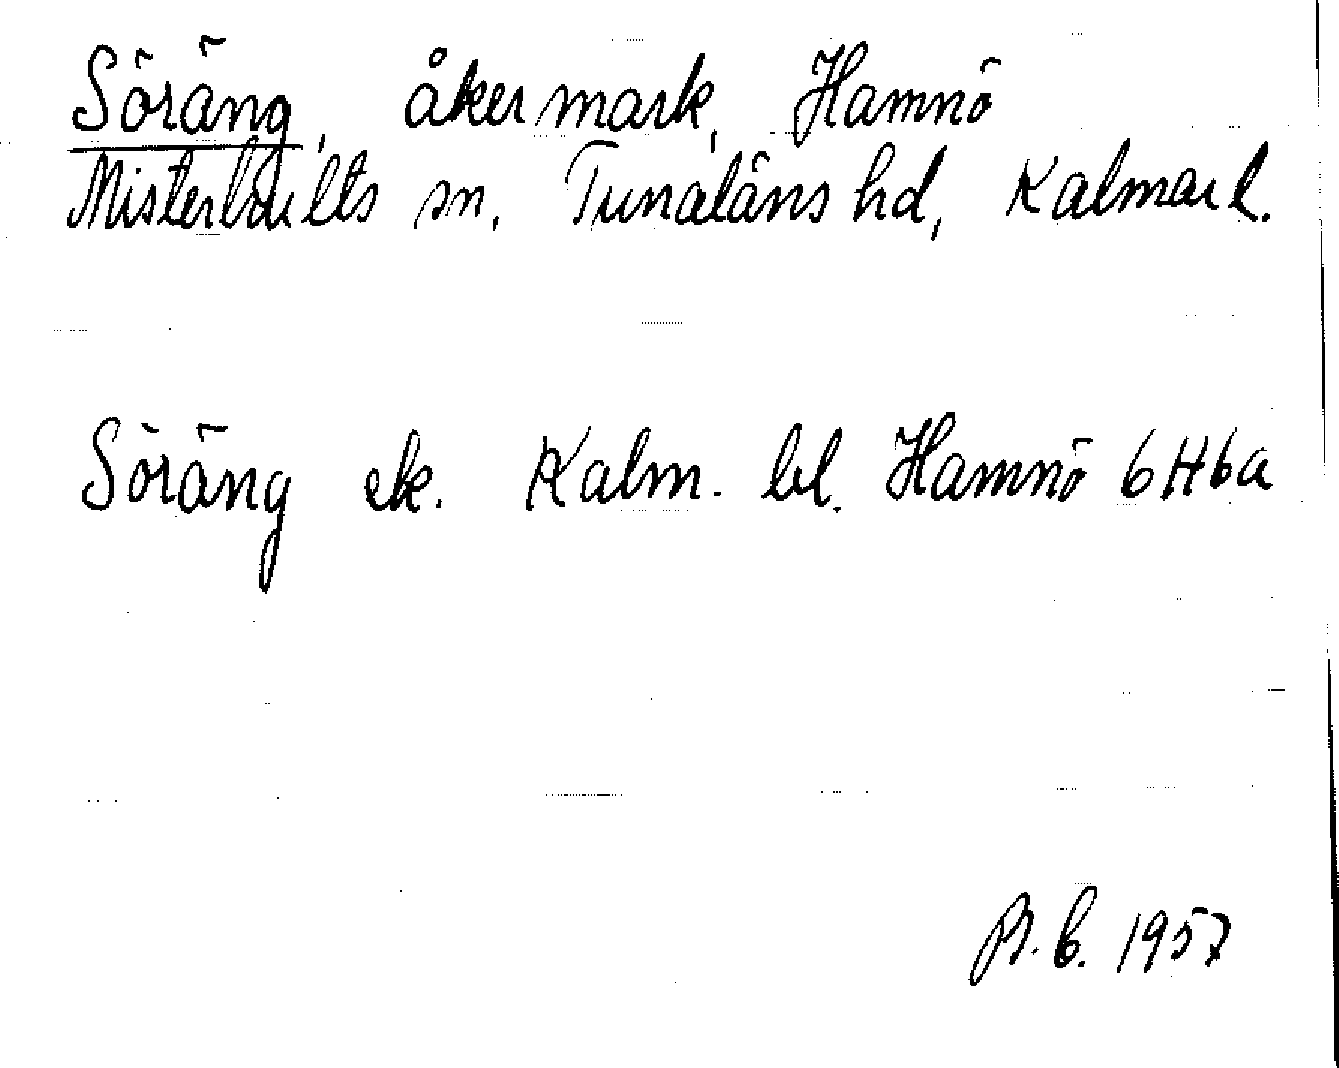 Söräng, åkermark, Hamnö
Misterhults sn, Tunaläns hd, Kalmar l.
Söräng ek. Kalm. bl. Hamnö 6H6a
1957